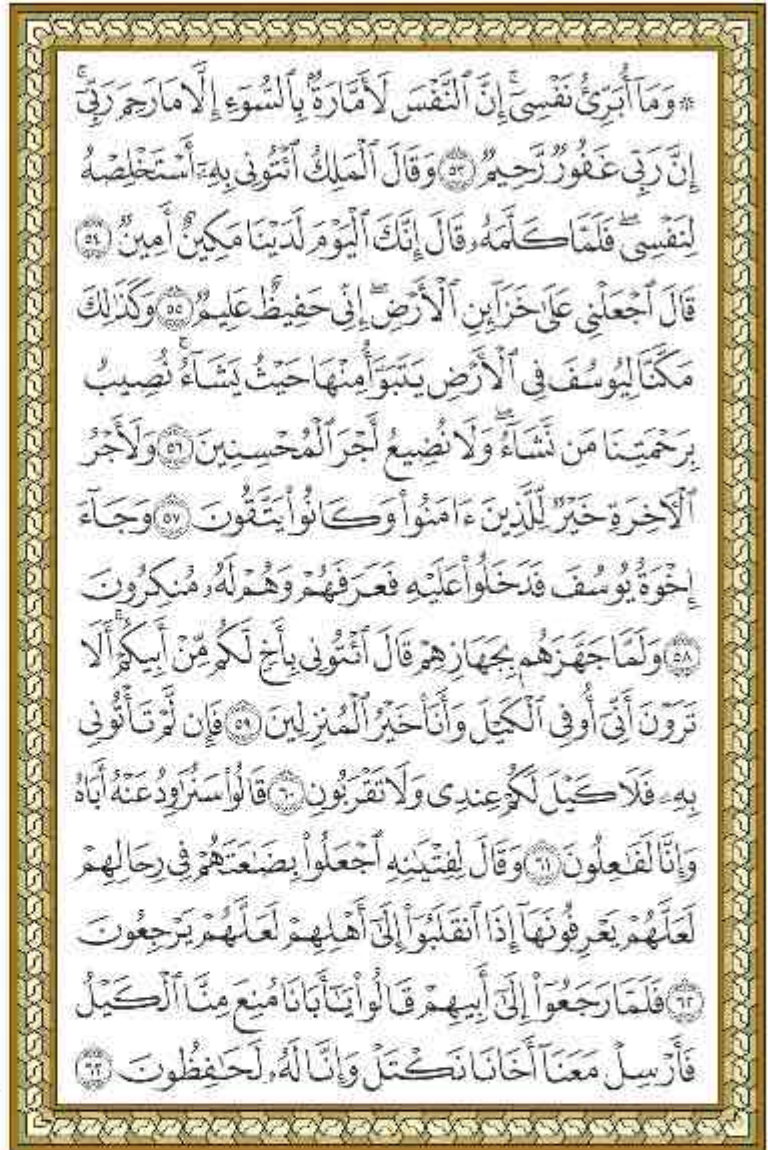 ۞ وَمَآ أُبَرِّئُ نَفْسِىٓۚ إِنَّ ٱلنَّفْسَ لَأَمَّارَةٌۢ بِٱلسُّوٓءِ إِلَّا مَا رَحِمَ رَبِّىٓۚ
إِنَّ رَبِّى غَفُورٌ رَّحِيمٌ ٥٣ وَقَالَ ٱلْمَلِكُ ٱئْتُونِى بِهِۦٓ أَسْتَخْلِصْهُ
لِنَفْسِىۖ فَلَمَّا كَلَّمَهُۥ قَالَ إِنَّكَ ٱلْيَوْمَ لَدَيْنَا مَكِينٌ أَمِينٌ ٥٤
قَالَ ٱجْعَلْنِى عَلَىٰ خَزَآئِنِ ٱلْأَرْضِۖ إِنِّى حَفِيظٌ عَلِيمٌ ٥٥ وَكَذَٰلِكَ
مَكَّنَّا لِيُوسُفَ فِى ٱلْأَرْضِ يَتَبَوَّأُ مِنْهَا حَيْثُ يَشَآءُۚ نُصِيبُ
بِرَحْمَتِنَا مَن نَّشَآءُۖ وَلَا نُضِيعُ أَجْرَ ٱلْمُحْسِنِينَ ٥٦ وَلَأَجْرُ
ٱلْءَاخِرَةِ خَيْرٌ لِّلَّذِينَ ءَامَنُوا۟ وَكَانُوا۟ يَتَّقُونَ ٥٧ وَجَآءَ
إِخْوَةُ يُوسُفَ فَدَخَلُوا۟ عَلَيْهِ فَعَرَفَهُمْ وَهُمْ لَهُۥ مُنكِرُونَ
٥٨ وَلَمَّا جَهَّزَهُم بِجَهَازِهِمْ قَالَ ٱئْتُونِى بِأَخٍ لَّكُم مِّنْ أَبِيكُمْۚ أَلَا
تَرَوْنَ أَنِّىٓ أُوفِى ٱلْكَيْلَ وَأَنَا۠ خَيْرُ ٱلْمُنزِلِينَ ٥٩ فَإِن لَّمْ تَأْتُونِى
بِهِۦ فَلَا كَيْلَ لَكُمْ عِندِى وَلَا تَقْرَبُونِ ٦٠ قَالُوا۟ سَنُرَٰوِدُ عَنْهُ أَبَاهُ
وَإِنَّا لَفَٰعِلُونَ ٦١ وَقَالَ لِفِتْيَٰنِهِ ٱجْعَلُوا۟ بِضَٰعَتَهُمْ فِى رِحَالِهِمْ
لَعَلَّهُمْ يَعْرِفُونَهَآ إِذَا ٱنقَلَبُوٓا۟ إِلَىٰٓ أَهْلِهِمْ لَعَلَّهُمْ يَرْجِعُونَ
٦٢ فَلَمَّا رَجَعُوٓا۟ إِلَىٰٓ أَبِيهِمْ قَالُوا۟ يَٰٓأَبَانَا مُنِعَ مِنَّا ٱلْكَيْلُ
فَأَرْسِلْ مَعَنَآ أَخَانَا نَكْتَلْ وَإِنَّا لَهُۥ لَحَٰفِظُونَ ٦٣